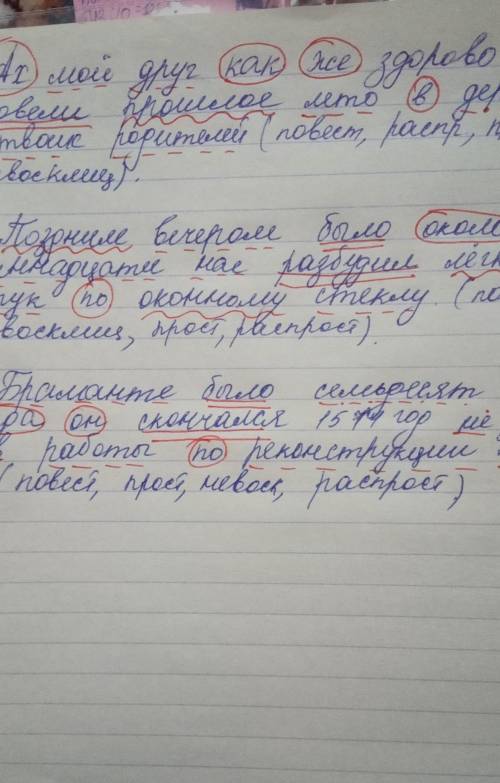 Ах мой друг как же здорово
овели прошлое лето в дер
твоих родителей (повест, распр, п
восклиц).
Поздним вечером было около
иннадцати нас разбудил лёгк
тук по оконному стеклу. (по
восклиц, прост, распрост).
Браманте было семьдесят
да он скончался 1514 год не
работы по реконструкции
(повест, прост, невоск, распрост)